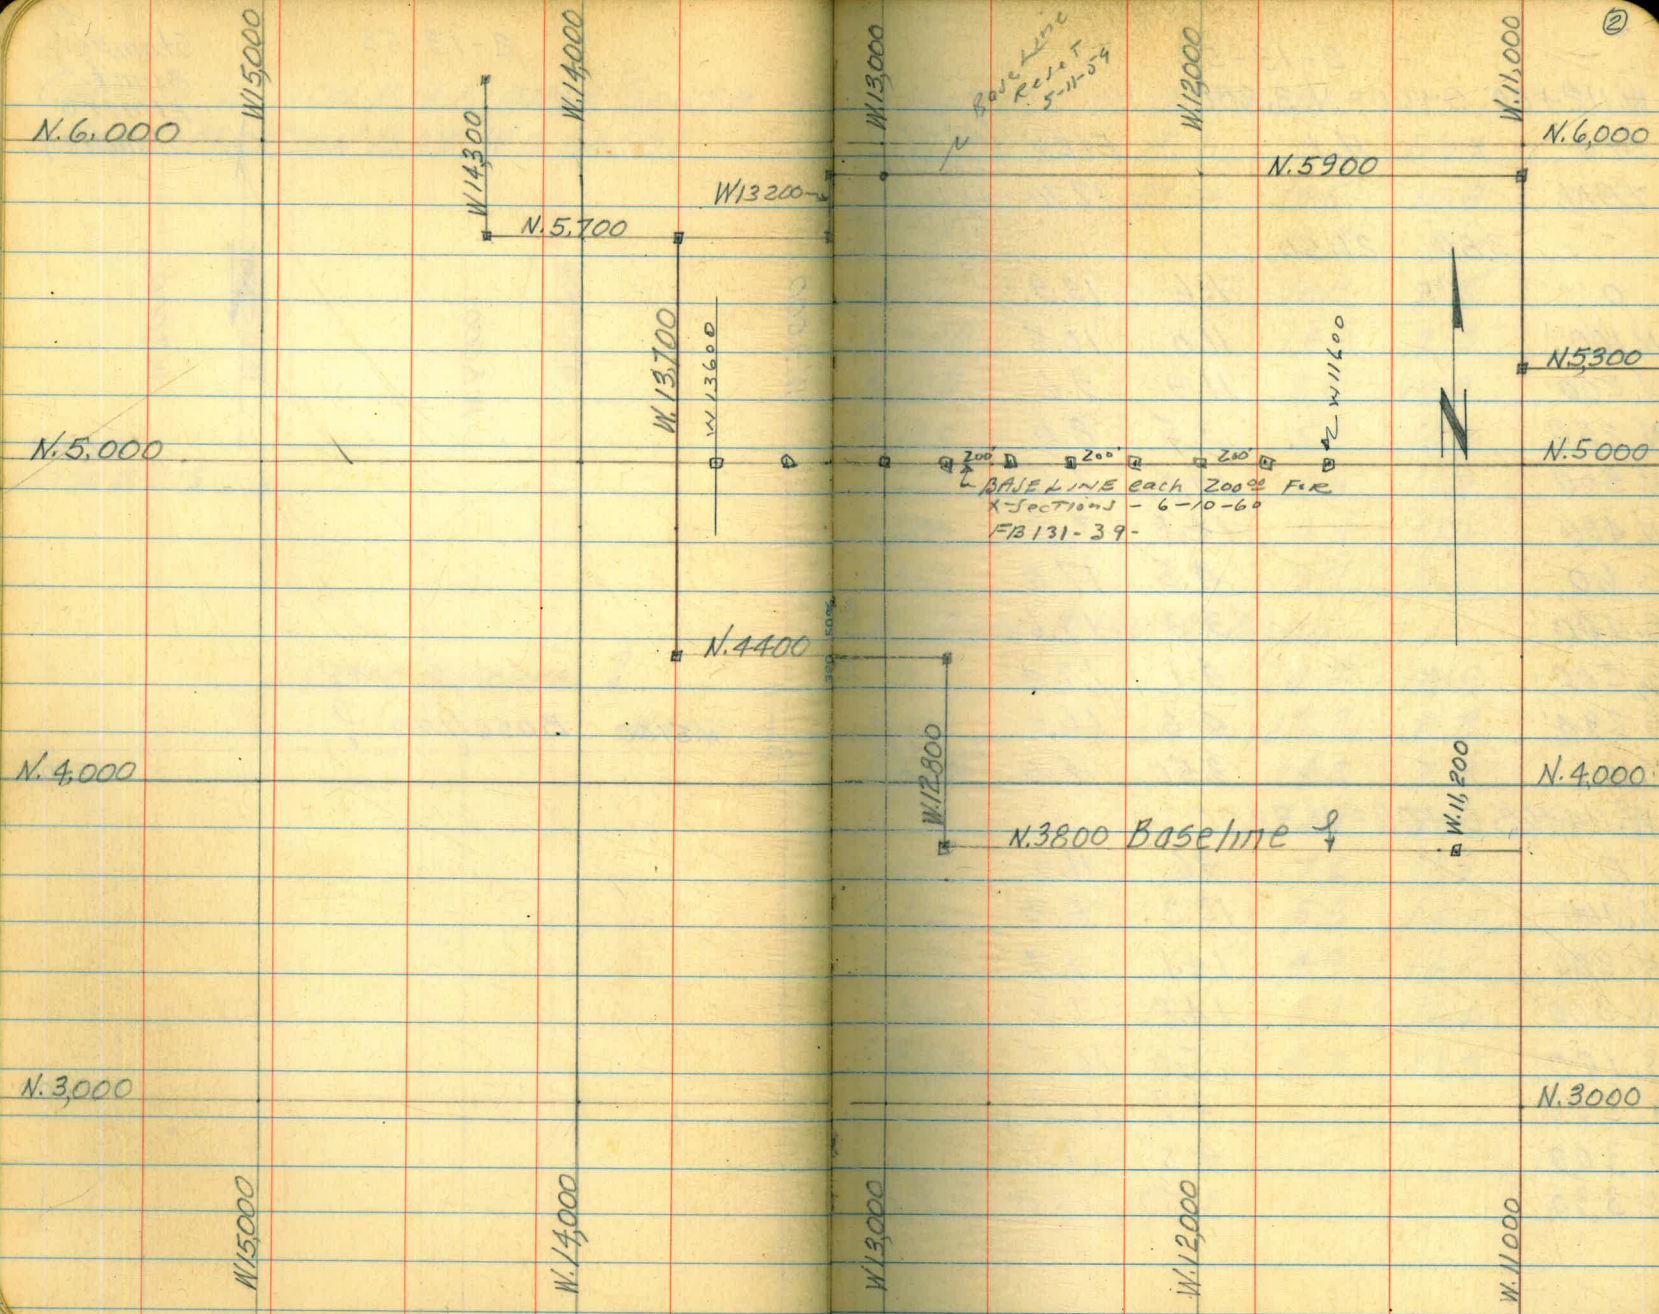 ②
W15,000
W.14,000
W.13,000
Baseline
Reset
5-11-54
W.12,000
W.11,000
N.6,000
N.6,000
W14,300
N.5900
W13200
N.5,700
W.13,700
W13600
W11600
N5,300
N
N.5,000
200' 200' 200'
N.5000
BASELINE each 200.00 FOR
X-SecTions - 6-10-60
FB131-39-
N.4400
W.12,800
W.11,200
N.4,000
N.4,000
N.3800 Baseline
N.3,000
N.3000
W15,000
W.14,000
W13,000
W.12,000
W.11000